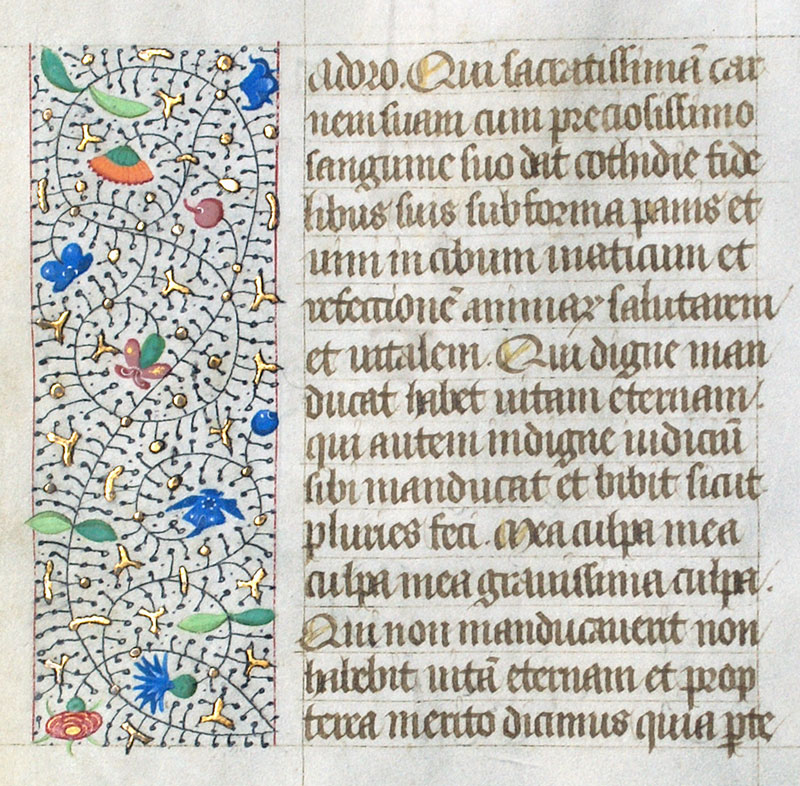 adoro. Qui sacratissimā car
nem suam cum preciosissimo
sanguine suo dat cothidie fide
libus suis sub forma panis et
uini in cibum uiaticum et
refectionē animar̄ salutarem
et uitalem. Qui digne man
ducat habet uitam eternam.
qui autem indigne iudiciū
sibi manducat et bibit sicut
pluries feci. Mea culpa mea
culpa mea grauissima culpa.
Qui non manducauerit non
habebit uitā eternam et prop
terea merito dicimus quia ꝑte